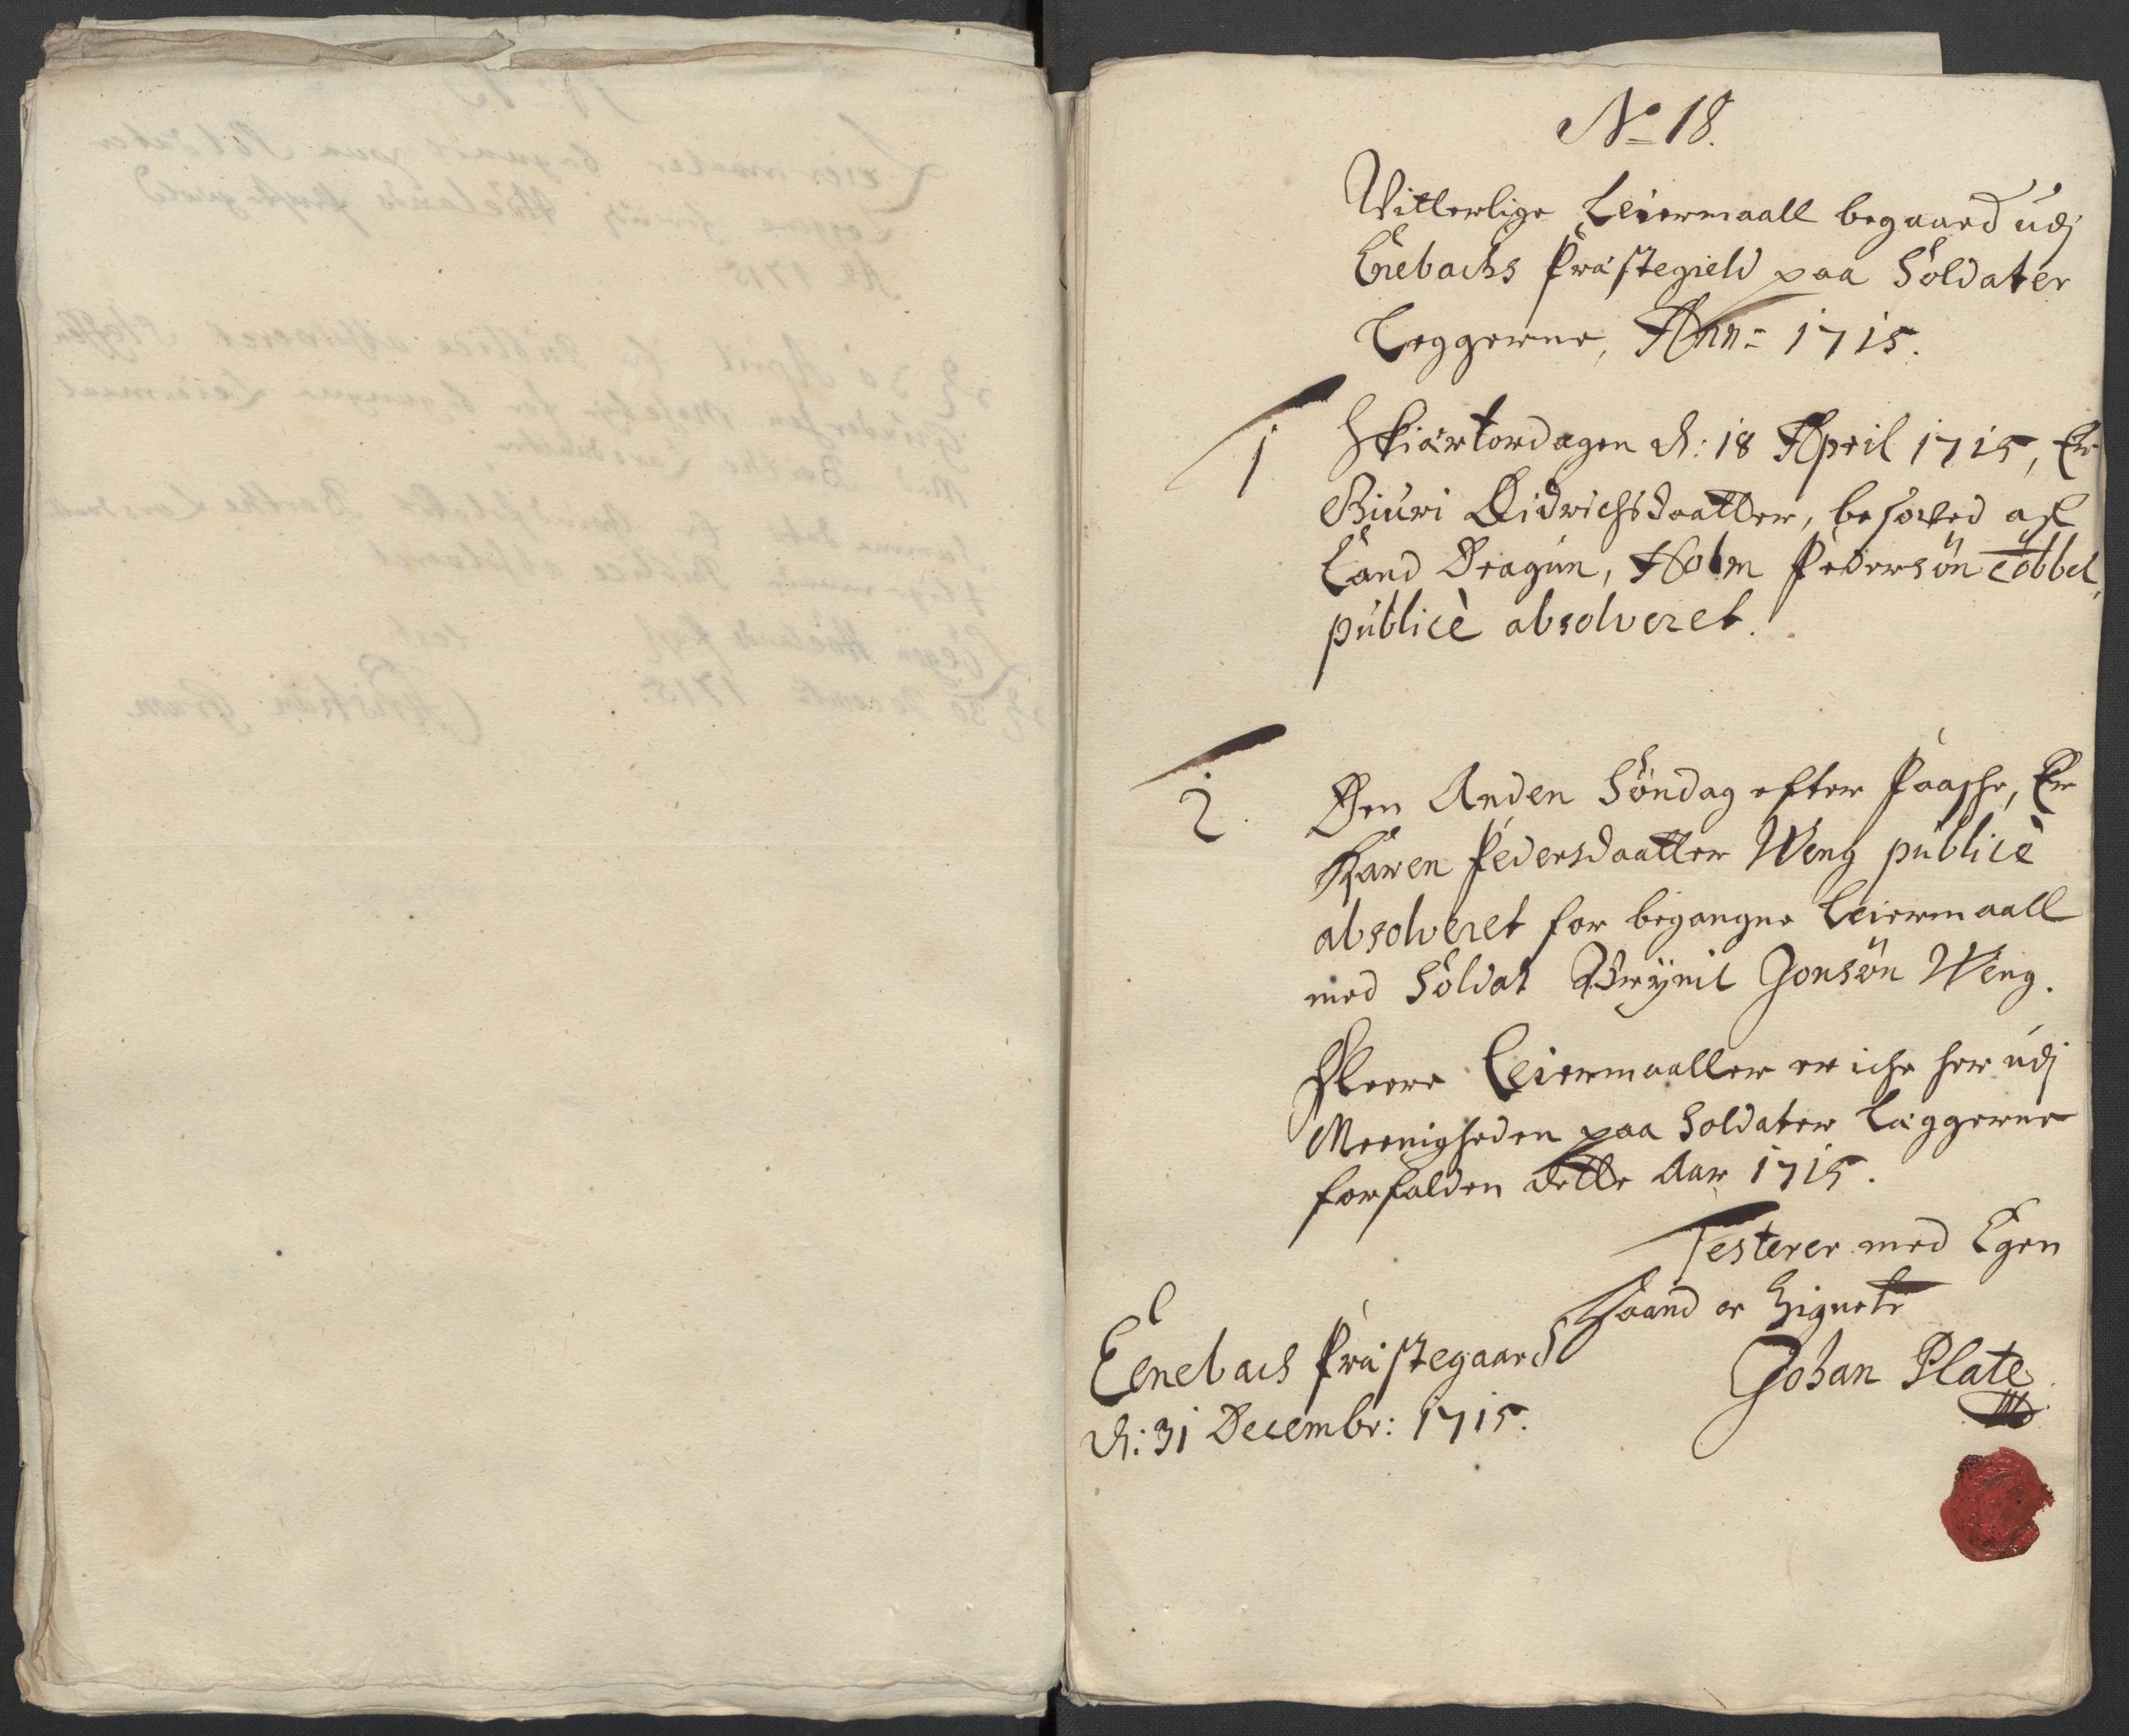 No 18.
Vitterlige Leiermaall begaaed udj
Enebachs Præstegield paa Soldater
Leggerne, Ann: 1715.
1 Skiærtordagen d: 18 April 1715, Er
Siuri Didrichsdaatter, besofved af
Land Dragun, Holm Pedersøn Tobbel,
publicè absolveret.
2. Den Anden Søndag efter Paasche, Er
Karen Pedersdaatter Weng publicè
absolveret for begangne Leiermaall
med Soldat Brynil Jonsøn Weng.
Fleere Leiermaaller er iche her udj
Meenigheden paa Soldater Læggerne
forfalden dette Aar 1715.
Testerer med Egen
Haand oc Signete
Eenebach Præstegaard
d: 31 Decembr: 1715.
Johan Plate